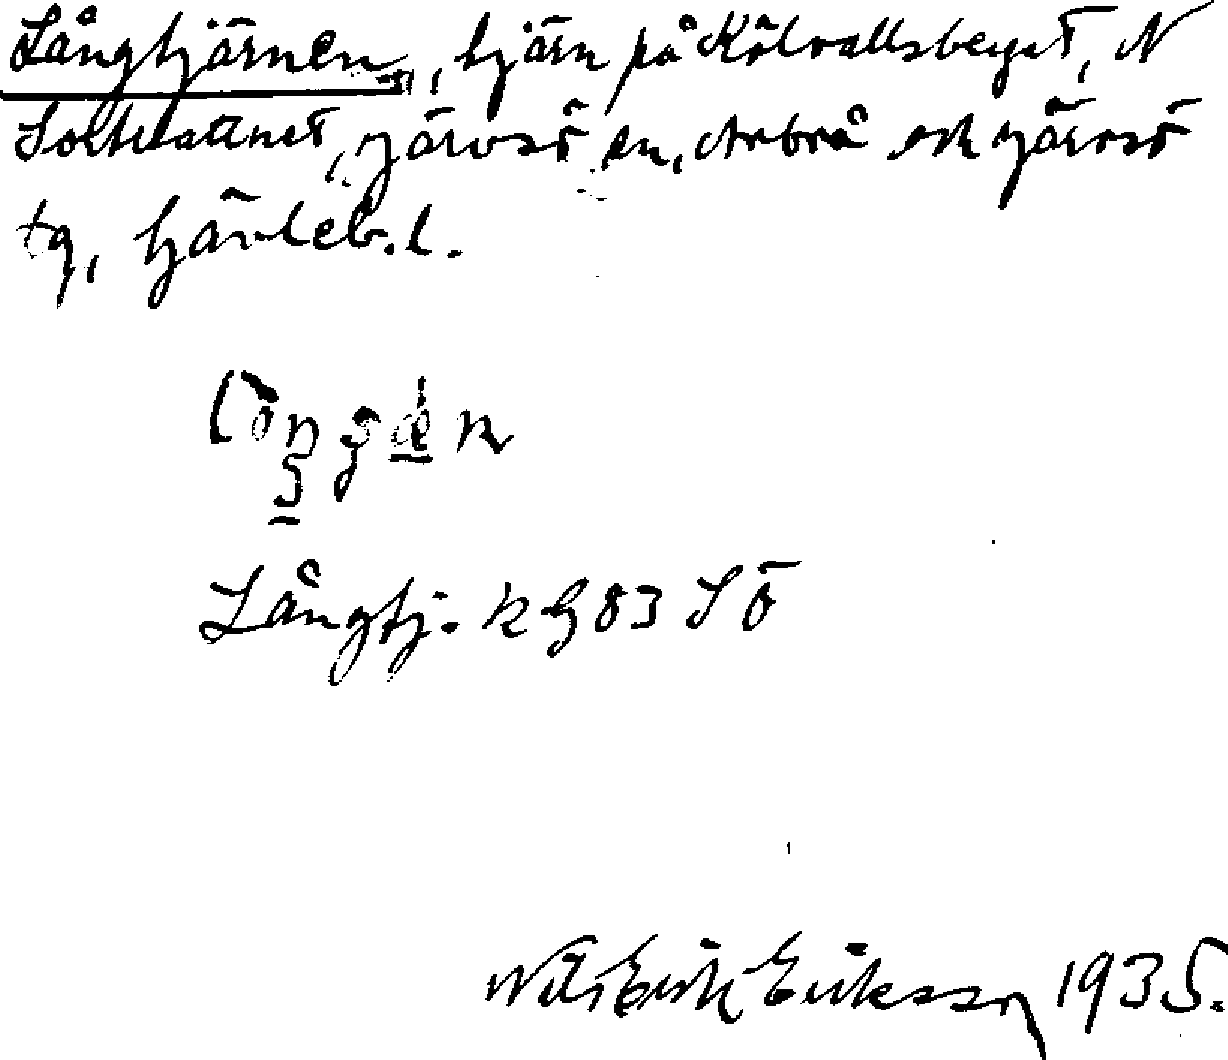 Långtjärnen, tjärn på Kölvallsberget, N
Sockvattnet, Järvsö sn, Arbrå och Järvsö
tg, Gävleb. l.
Långtj. k G 83 S Ö
Nils Erik Eriksson 1935.